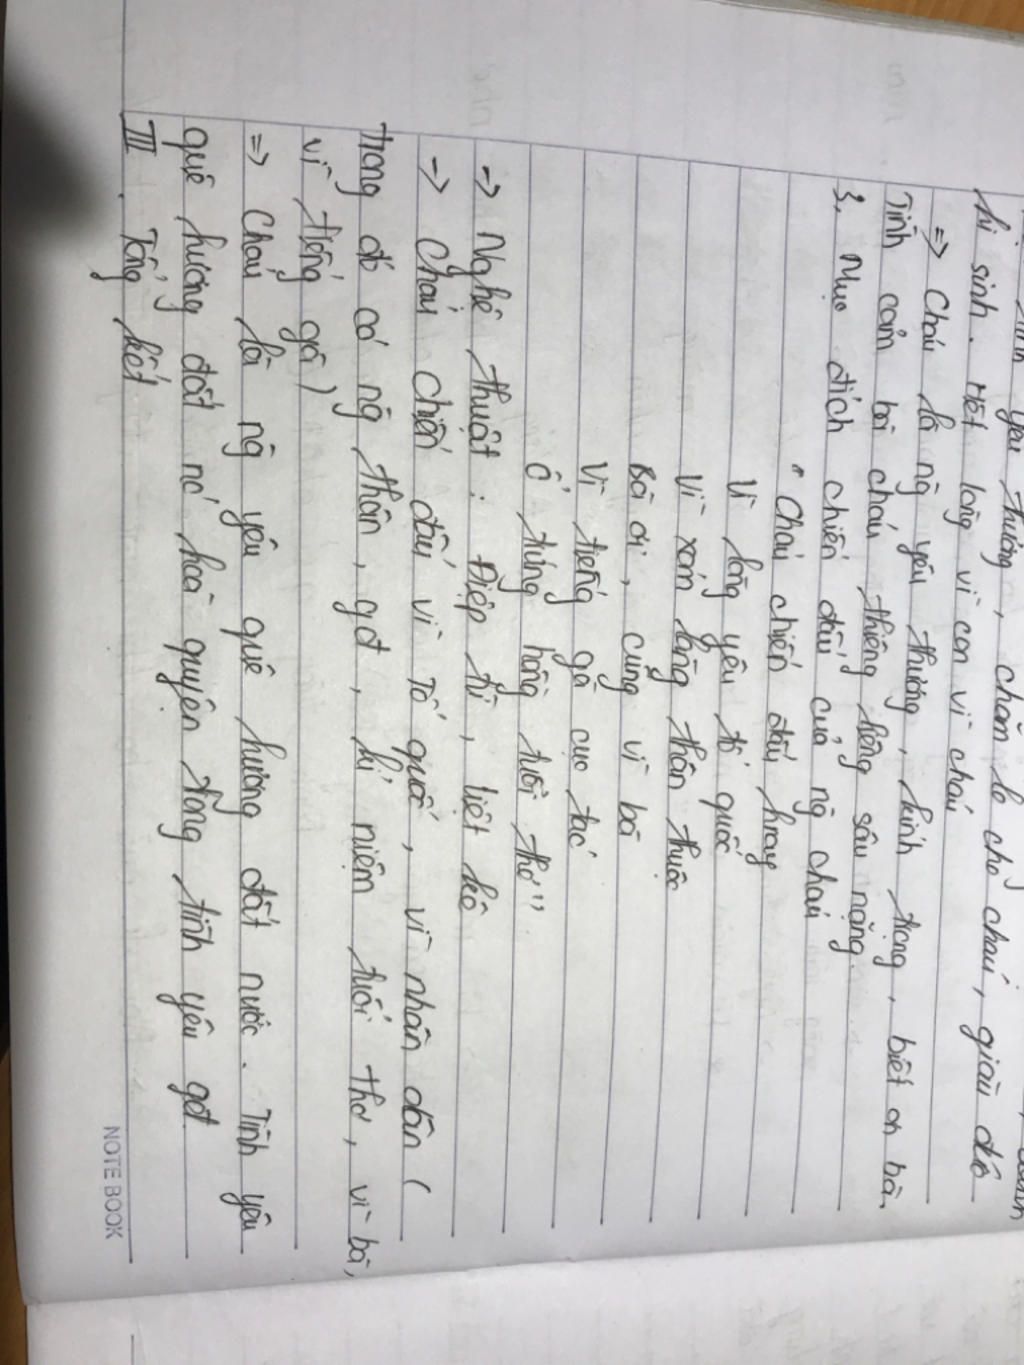 yêu thương, chăm lo cho cháu, giàu đức
hi sinh. Hết lòng vì con vì cháu
=> Cháu là ng yêu thương, kính trọng, biết ơn bà.
Tình cảm bà cháu thiêng liêng sâu nặng.
3. Mục đích chiến đấu của ng cháu
" Cháu chiến đấu hnay
Vì lòng yêu tổ quốc
Vì xóm làng thân thuộc
Bà ơi, cũng vì bà
Vì tiếng gà cục tác
Ổ trứng hồng tuổi thơ"
-> Nghệ thuật: Điệp từ, liệt kê
-> Cháu chiến đấu vì Tổ quốc, vì nhân dân (
trong đó có ng thân, gđ, kỉ niệm tuổi thơ, vì bà,
vì tiếng gà)
=> Cháu là ng yêu quê hương đất nước. Tình yêu
quê hương đất nc hoà quyện trong tình yêu gđ
III. Tổng kết
NOTE BOOK